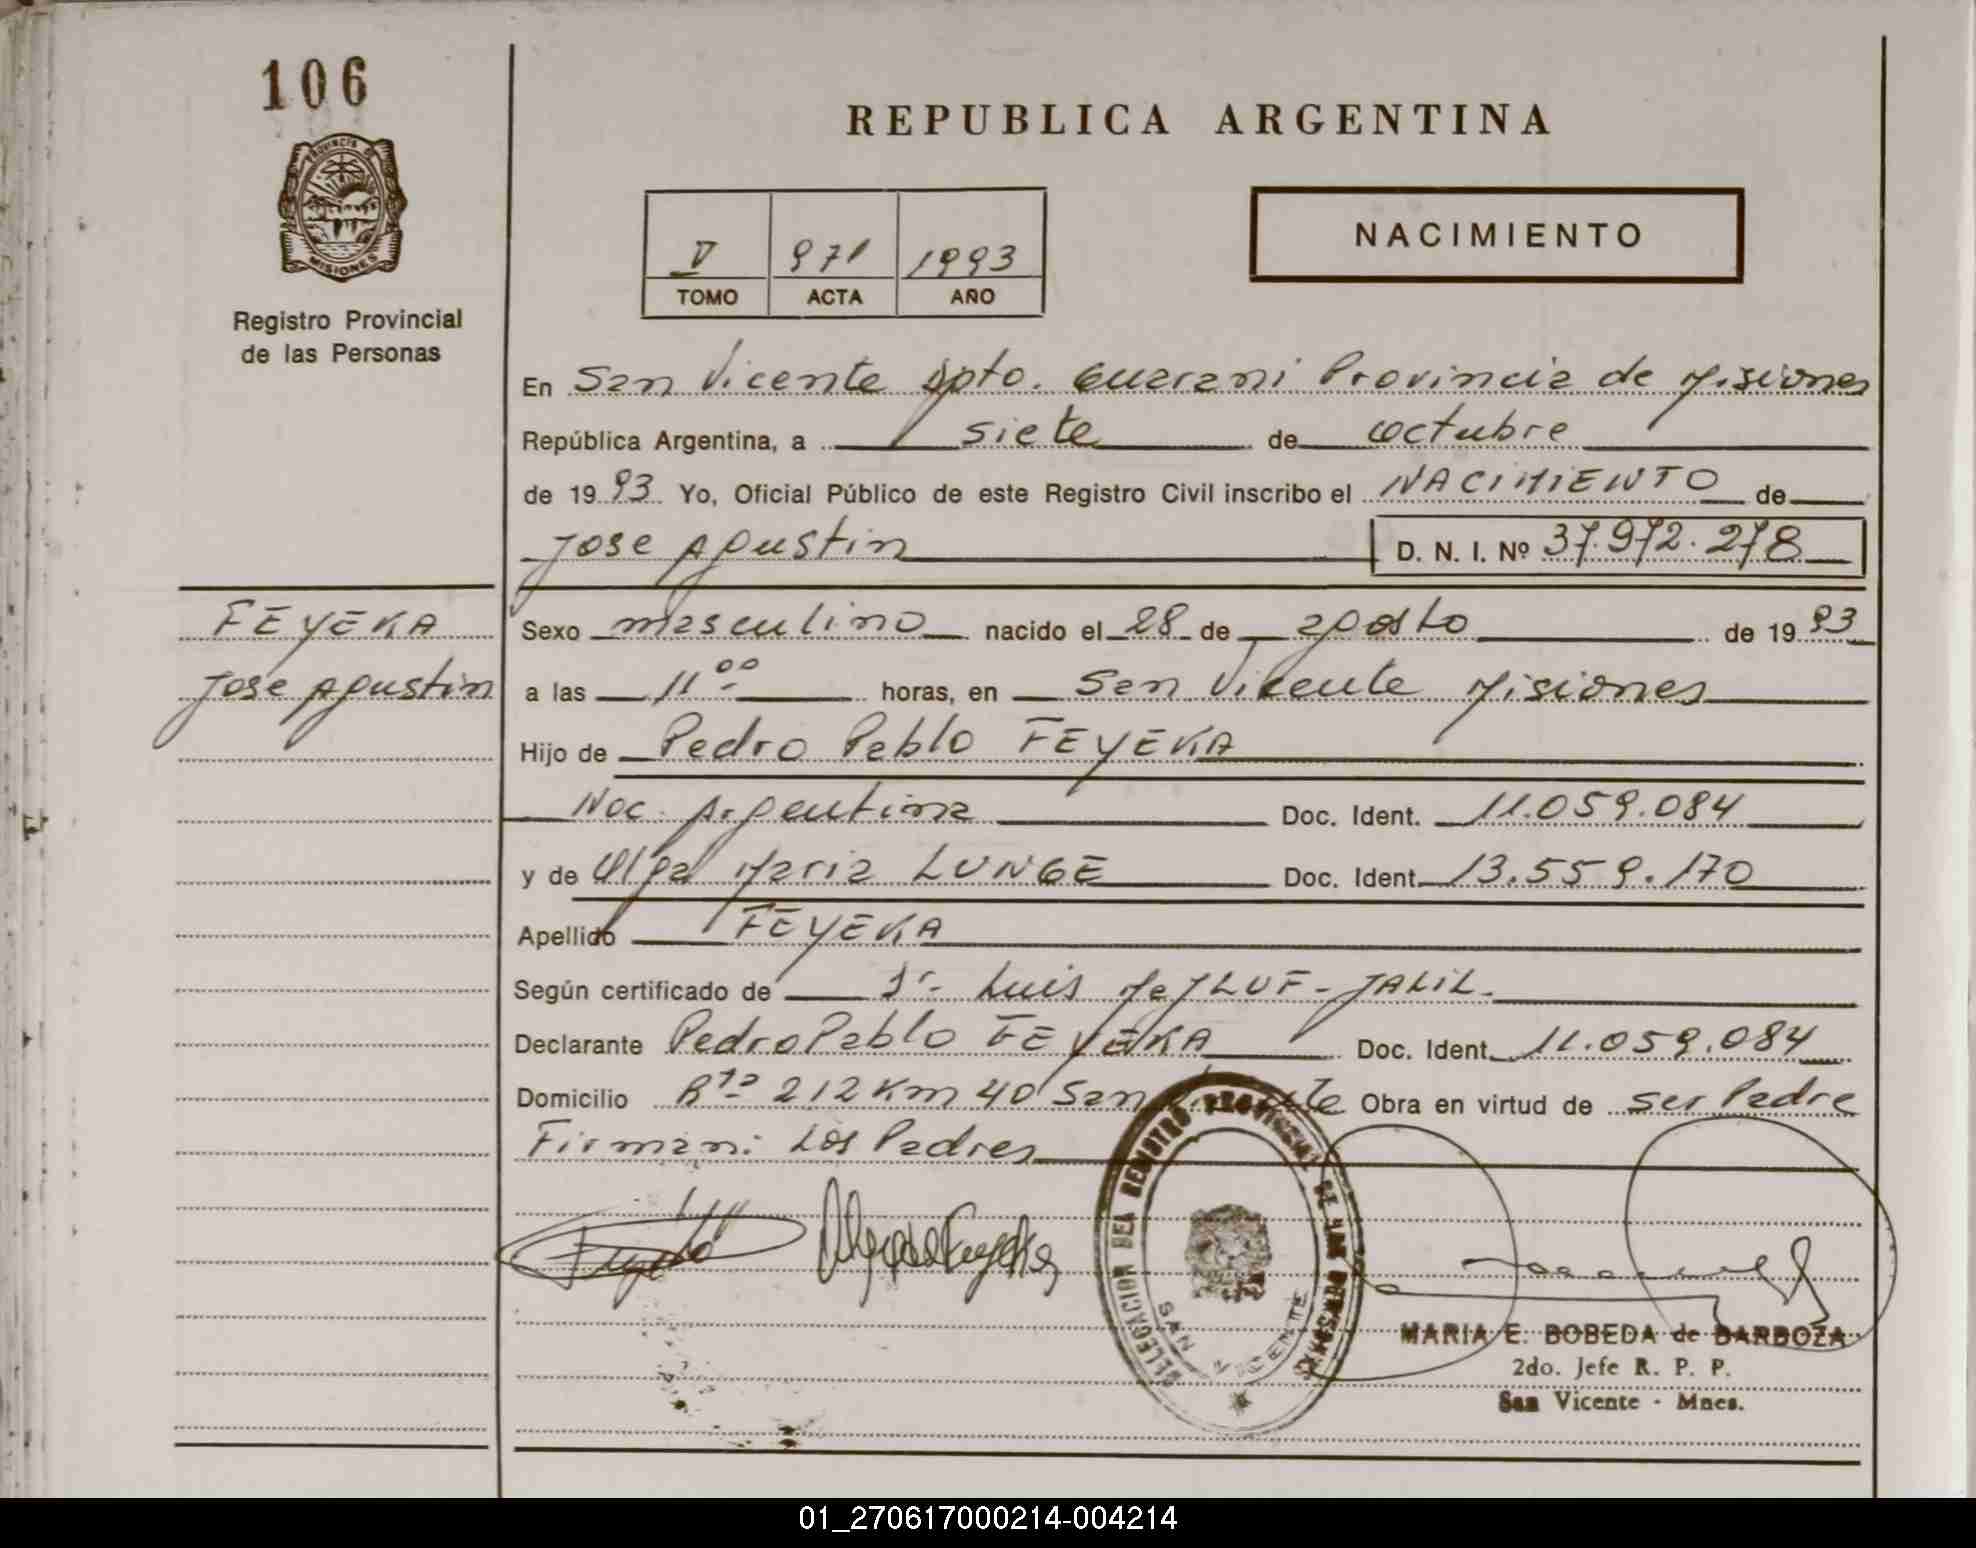 106
PROVINCIA DE
MISIONES
Registro Provincial
de las Personas
REPUBLICA ARGENTINA
V 971 1993
TOMO ACTA AÑO
NACIMIENTO
En San Vicente Dpto. Guarani Provincia de Misiones
República Argentina, a siete de octubre
de 1993 Yo, Oficial Público de este Registro Civil inscribo el NACIMIENTO de
Jose Agustin D. N. I. Nº 37.972.278
FEYEKA
Jose Agustin
Sexo masculino nacido el 28 de agosto de 1993
a las 11 00 horas, en San Vicente Misiones
Hijo de Pedro Pablo FEYEKA
Nac. Argentina Doc. Ident. 11.059.084
y de Olga Maria LUNGE Doc. Ident. 13.559.170
Apellido FEYEKA
Según certificado de Dr. Luis JALIL.
Declarante Pedro Pablo FEYEKA Doc. Ident. 11.059.084
Domicilio Rta 212 Km 40 San Vicente Obra en virtud de ser Padre
Firman: Los Padres
DELEGACION DEL REGISTRO PROVINCIAL DE LAS PERSONAS
SAN VICENTE
MARIA E. BOBEDA de BARBOZA
2do. Jefe R. P. P.
San Vicente - Mnes.
01_270617000214-004214